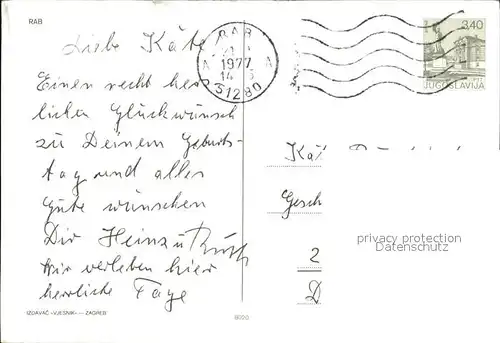 RAB
Liebe Käte
Einen recht herz
lichen Glückwunsch
zu Deinem Geburts-
tag und alles
Gute wünschen
Dir Heinz u Ruth
Wir verleben hier
herrliche Tage
IZDAVAČ »VJESNIK« — ZAGREB
8620
RAB
1977
A A
14
51280
3,40
JUGOSLAVIJA
Kät
Gesch
privacy protection
Datenschutz
2
D